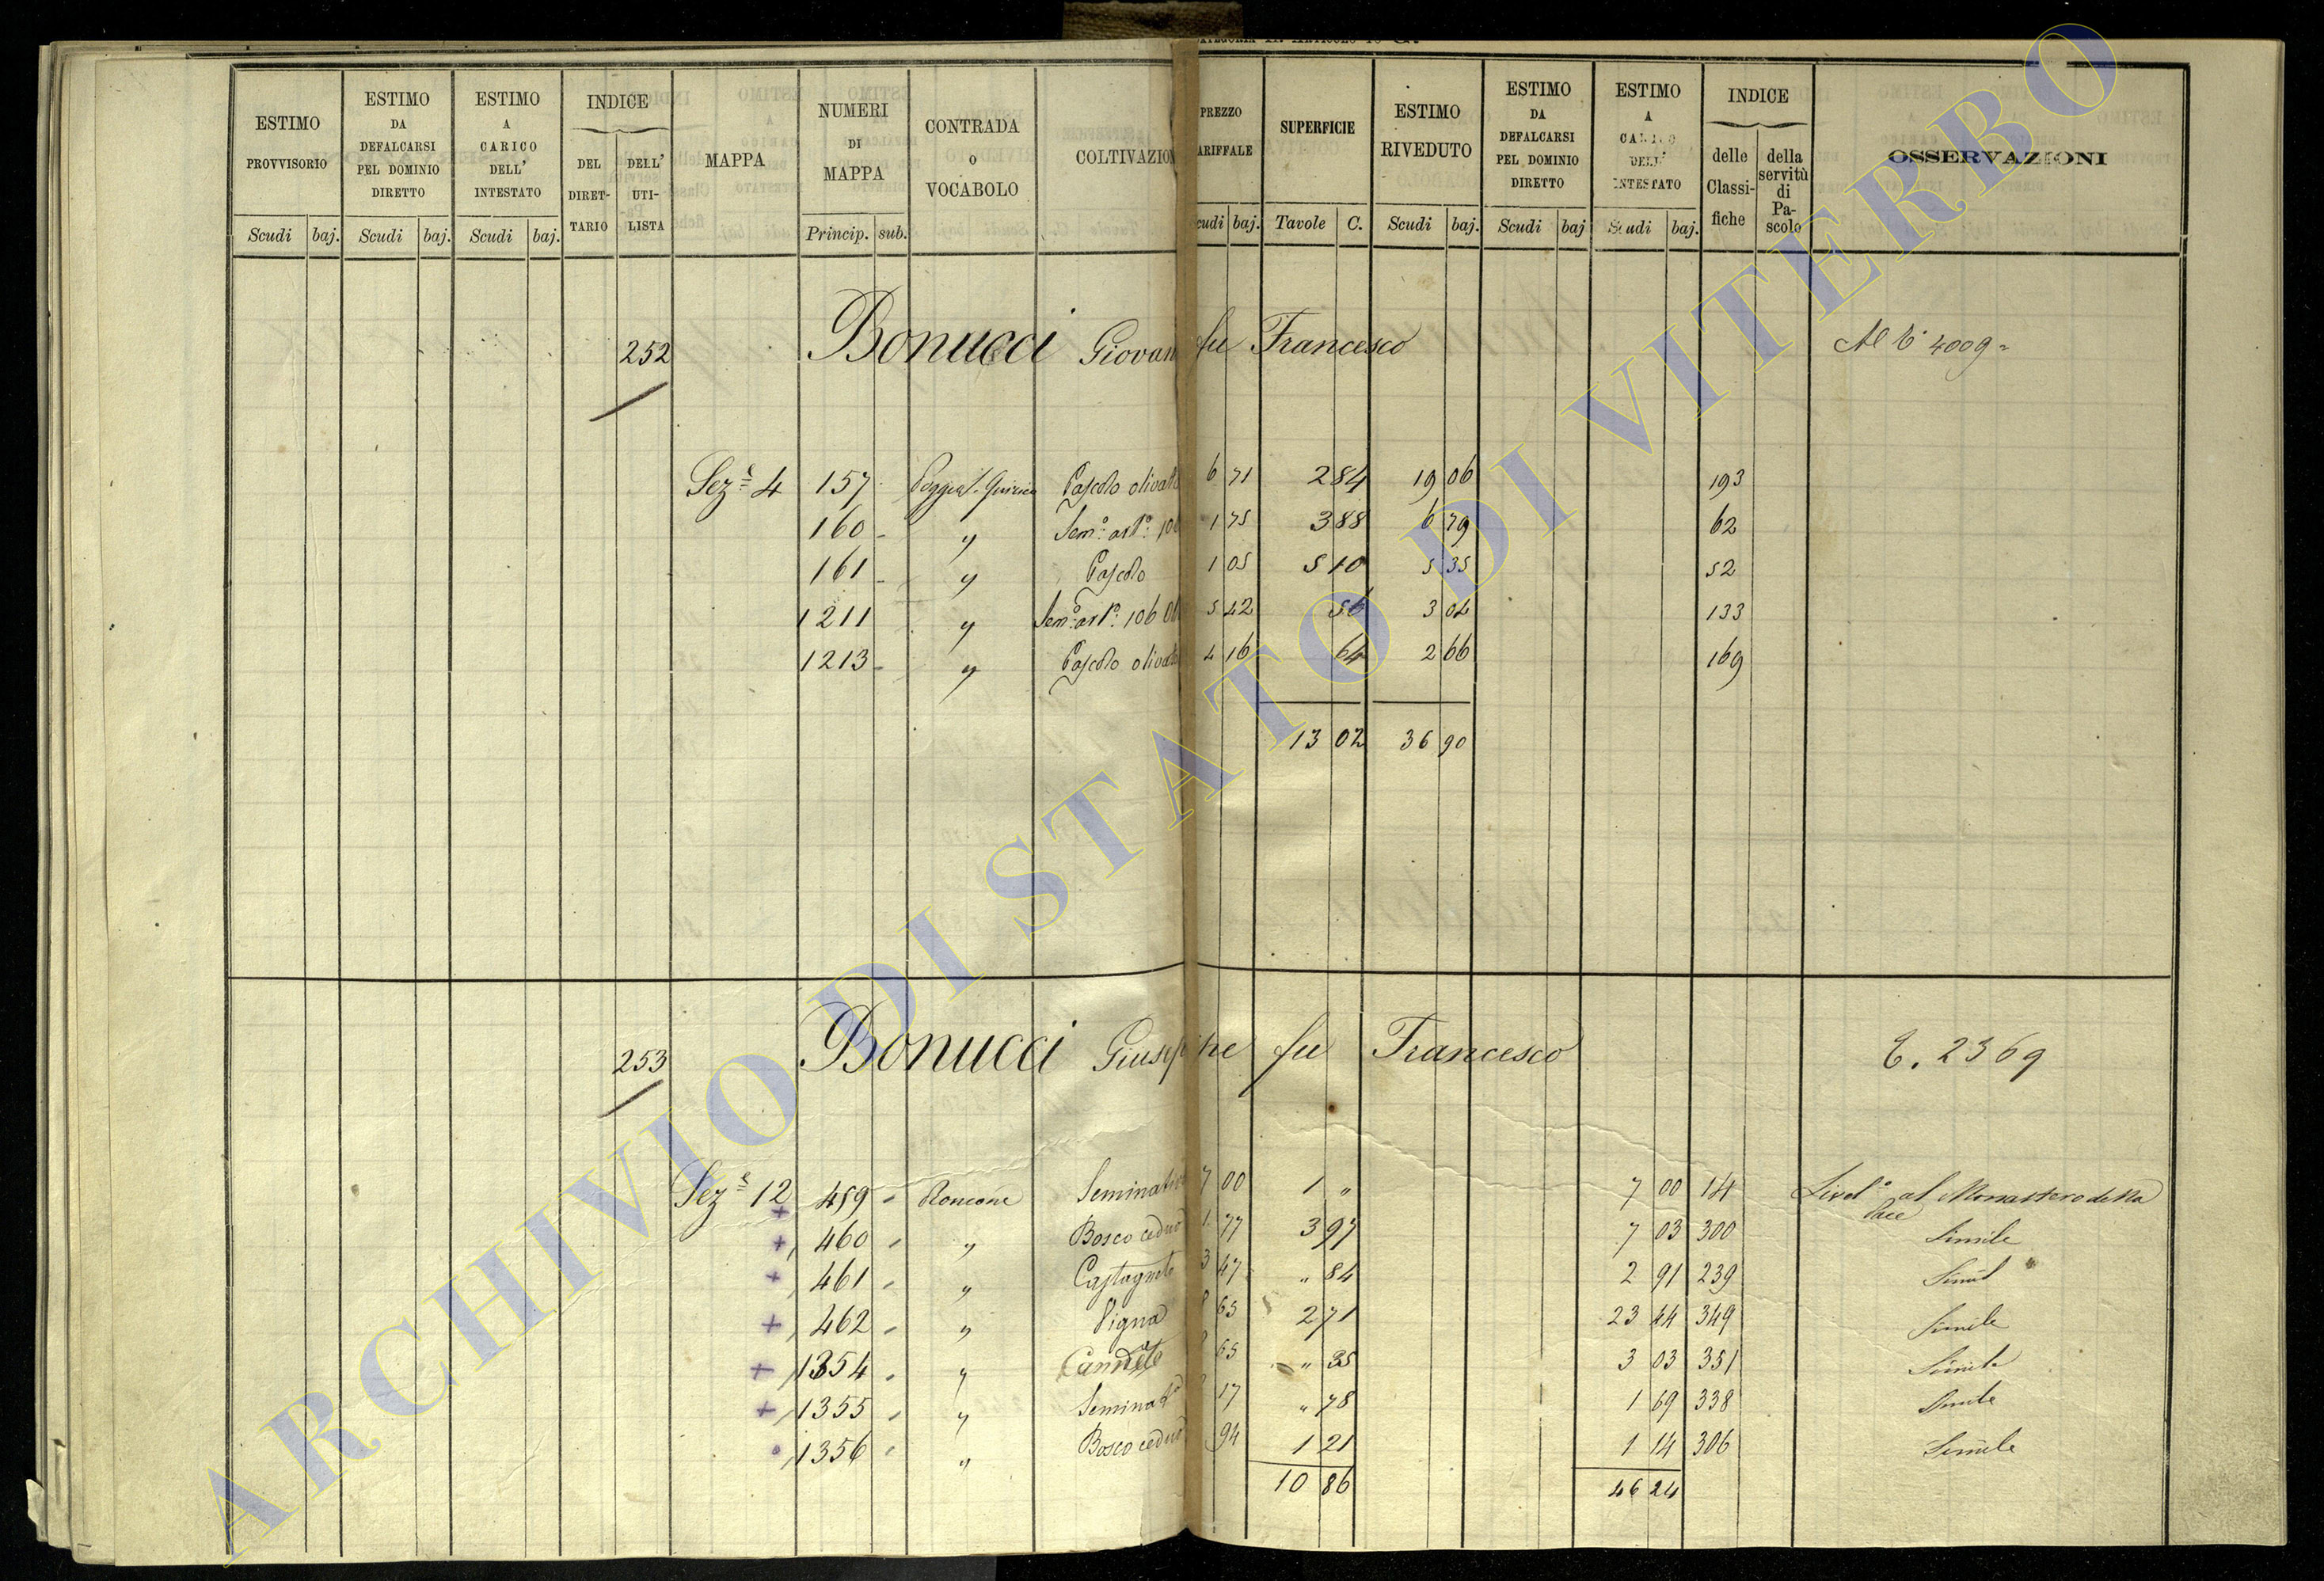 ESTIMO PROVVISORIO | ESTIMO DA DEFALCARSI PEL DOMINIO DIRETTO | ESTIMO A CARICO DELL' INTESTATO | INDICE DEL DIRETTARIO | DELL' UTILISTA | MAPPA | NUMERI DI MAPPA | CONTRADA O VOCABOLO | COLTIVAZION | PREZZO ARIFFALE | SUPERFICIE | ESTIMO RIVEDUTO | ESTIMO DA DEFALCARSI PEL DOMINIO DIRETTO | ESTIMO A CARICO DELL' INTESTATO | INDICE delle Classifiche | della servitù di Pascolo | OSSERVAZIONI
Scudi | baj. | Scudi | baj. | Scudi | baj. | Princip. | sub. | cudi | baj. | Tavole | C. | Scudi | baj. | Scudi | baj | Scudi | baj.
252 Bonucci Giovan fu Francesco 4009
Sez.e 4 157 Poggio S. Quirico Pascolo olivato 6 71 2 84 19 06 193
160 " Sem.o art.o 1 75 3 88 6 79 62
161 " Pascolo 1 05 5 10 5 35 52
1211 " Sem.o art.o 106 5 42 56 3 04 133
1213 " Pascolo olivato 4 16 64 2 66 169
13 02 36 90
253 Bonucci Giuseppe fu Francesco 2369
Sez.e 12 459 Roncone Seminativo 7 00 1 " 7 00 14 Livel.o al Monastero della Pace
+ 460 " Bosco ceduo 1 77 3 97 7 03 300 Simile
+ 461 " Castagneto 3 47 " 84 2 91 239 Simil
+ 462 " Vigna 8 65 2 71 23 44 349 Simile
+ 1354 " Canneto 65 " 35 3 03 351 Simile
+ 1355 " Seminat.o 17 " 78 1 69 338 Simile
1356 " Bosco ceduo 94 1 21 1 14 306 Simile
10 86 46 24
ARCHIVIO DI STATO DI VITERBO